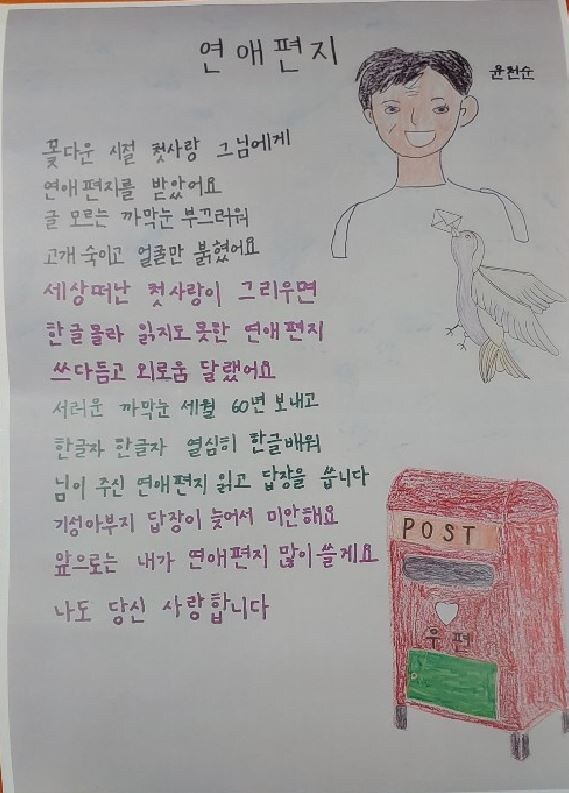 연애편지
윤현순
꽃다운 시절 첫사랑 그님에게
연애편지를 받았어요
글 모르는 까막눈 부끄러워
고개 숙이고 얼굴만 붉혔어요
세상떠난 첫사랑이 그리우면
한글몰라 읽지도 못한 연애편지
쓰다듬고 외로움 달랬어요
서러운 까막눈 세월 60년 보내고
한글자 한글자 열심히 한글배워
님이 주신 연애편지 읽고 답장을 씁니다
기성아부지 답장이 늦어서 미안해요
앞으로는 내가 연애편지 많이 쓸게요
나도 당신 사랑합니다
POST
우편